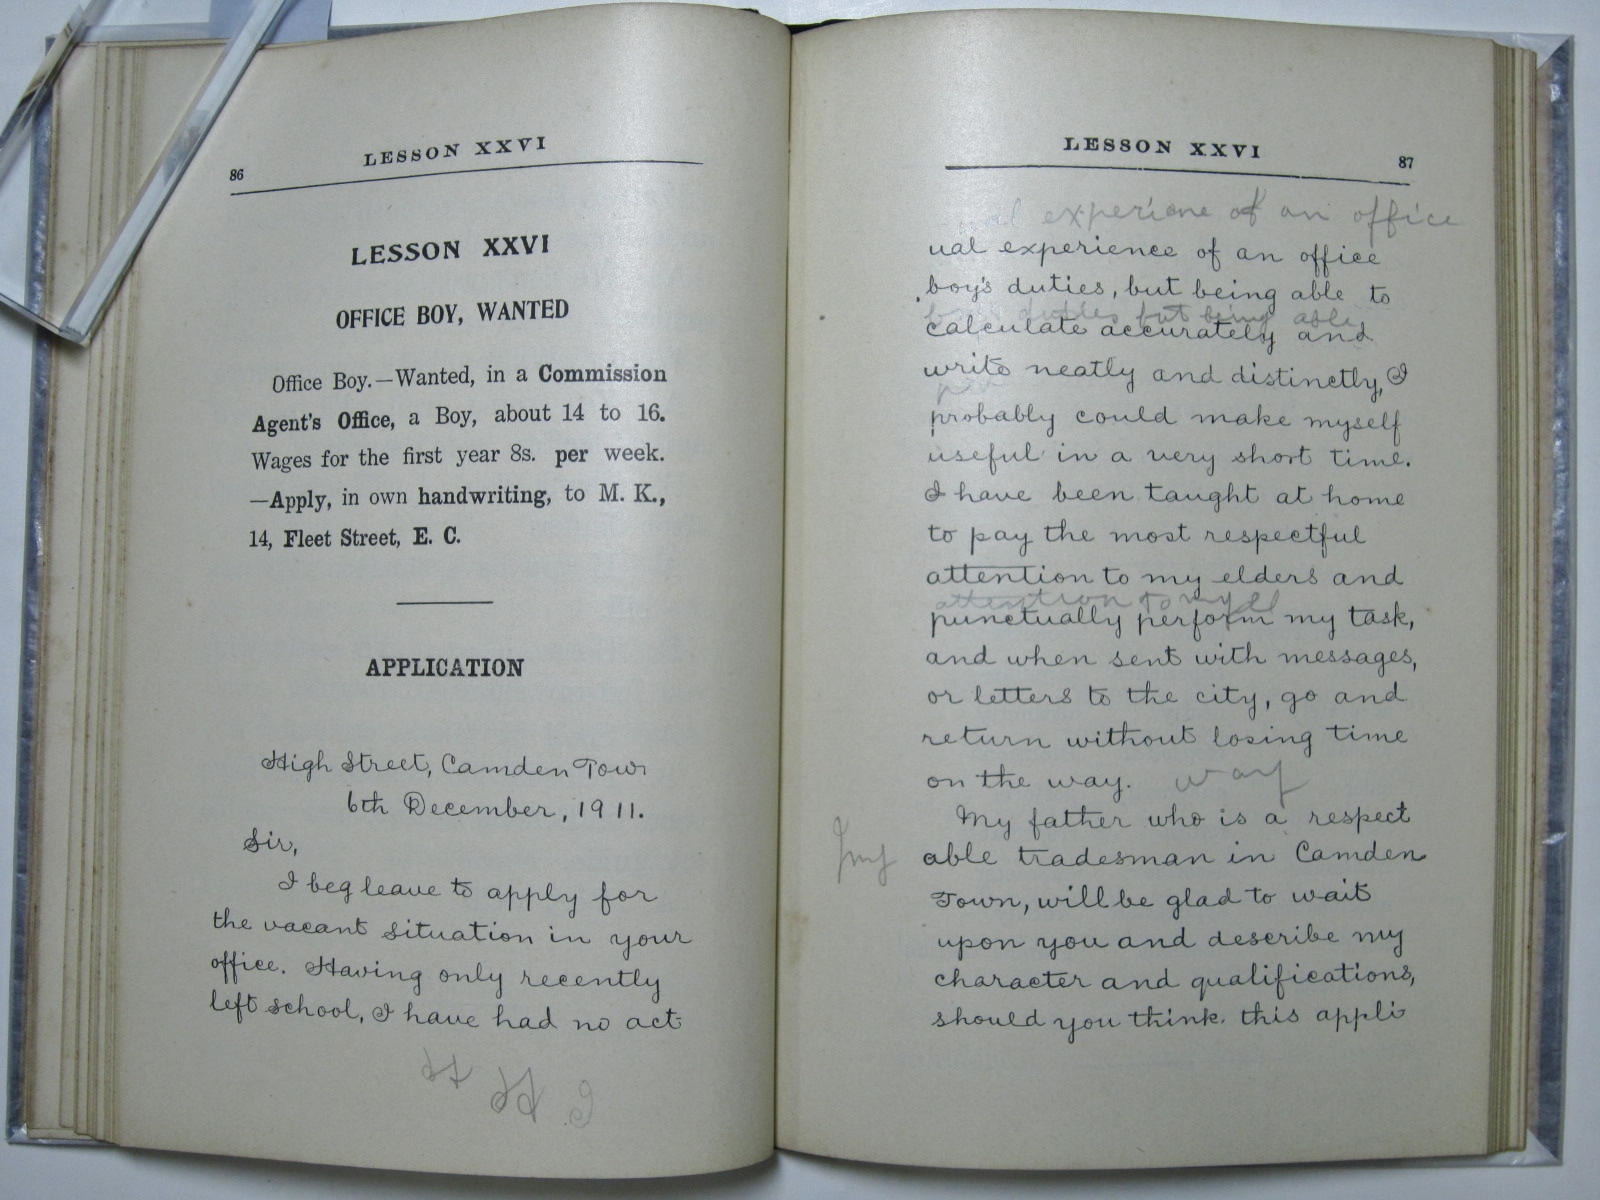 86
LESSON XXVI
LESSON XXVI
OFFICE BOY, WANTED
Office Boy.—Wanted, in a Commission
Agent's Office, a Boy, about 14 to 16.
Wages for the first year 8s. per week.
—Apply, in own handwriting, to M. K.,
14, Fleet Street, E. C.
APPLICATION
High Street, Camden Town
6th December, 1911.
Sir,
I beg leave to apply for
the vacant situation in your
office. Having only recently
left school, I have had no act
H H
LESSON XXVI
87
ual experience of an office
ual experience of an office
boy's duties, but being able to
boys duties but being able
calculate accurately and
write neatly and distinctly, I
probably could make myself
useful in a very short time.
I have been taught at home
to pay the most respectful
attention to my elders and
attention to my el
punctually perform my task,
and when sent with messages,
or letters to the city, go and
return without losing time
on the way. way
My father who is a respect
my
able tradesman in Camden
Town, will be glad to wait
upon you and describe my
character and qualifications,
should you think this appli